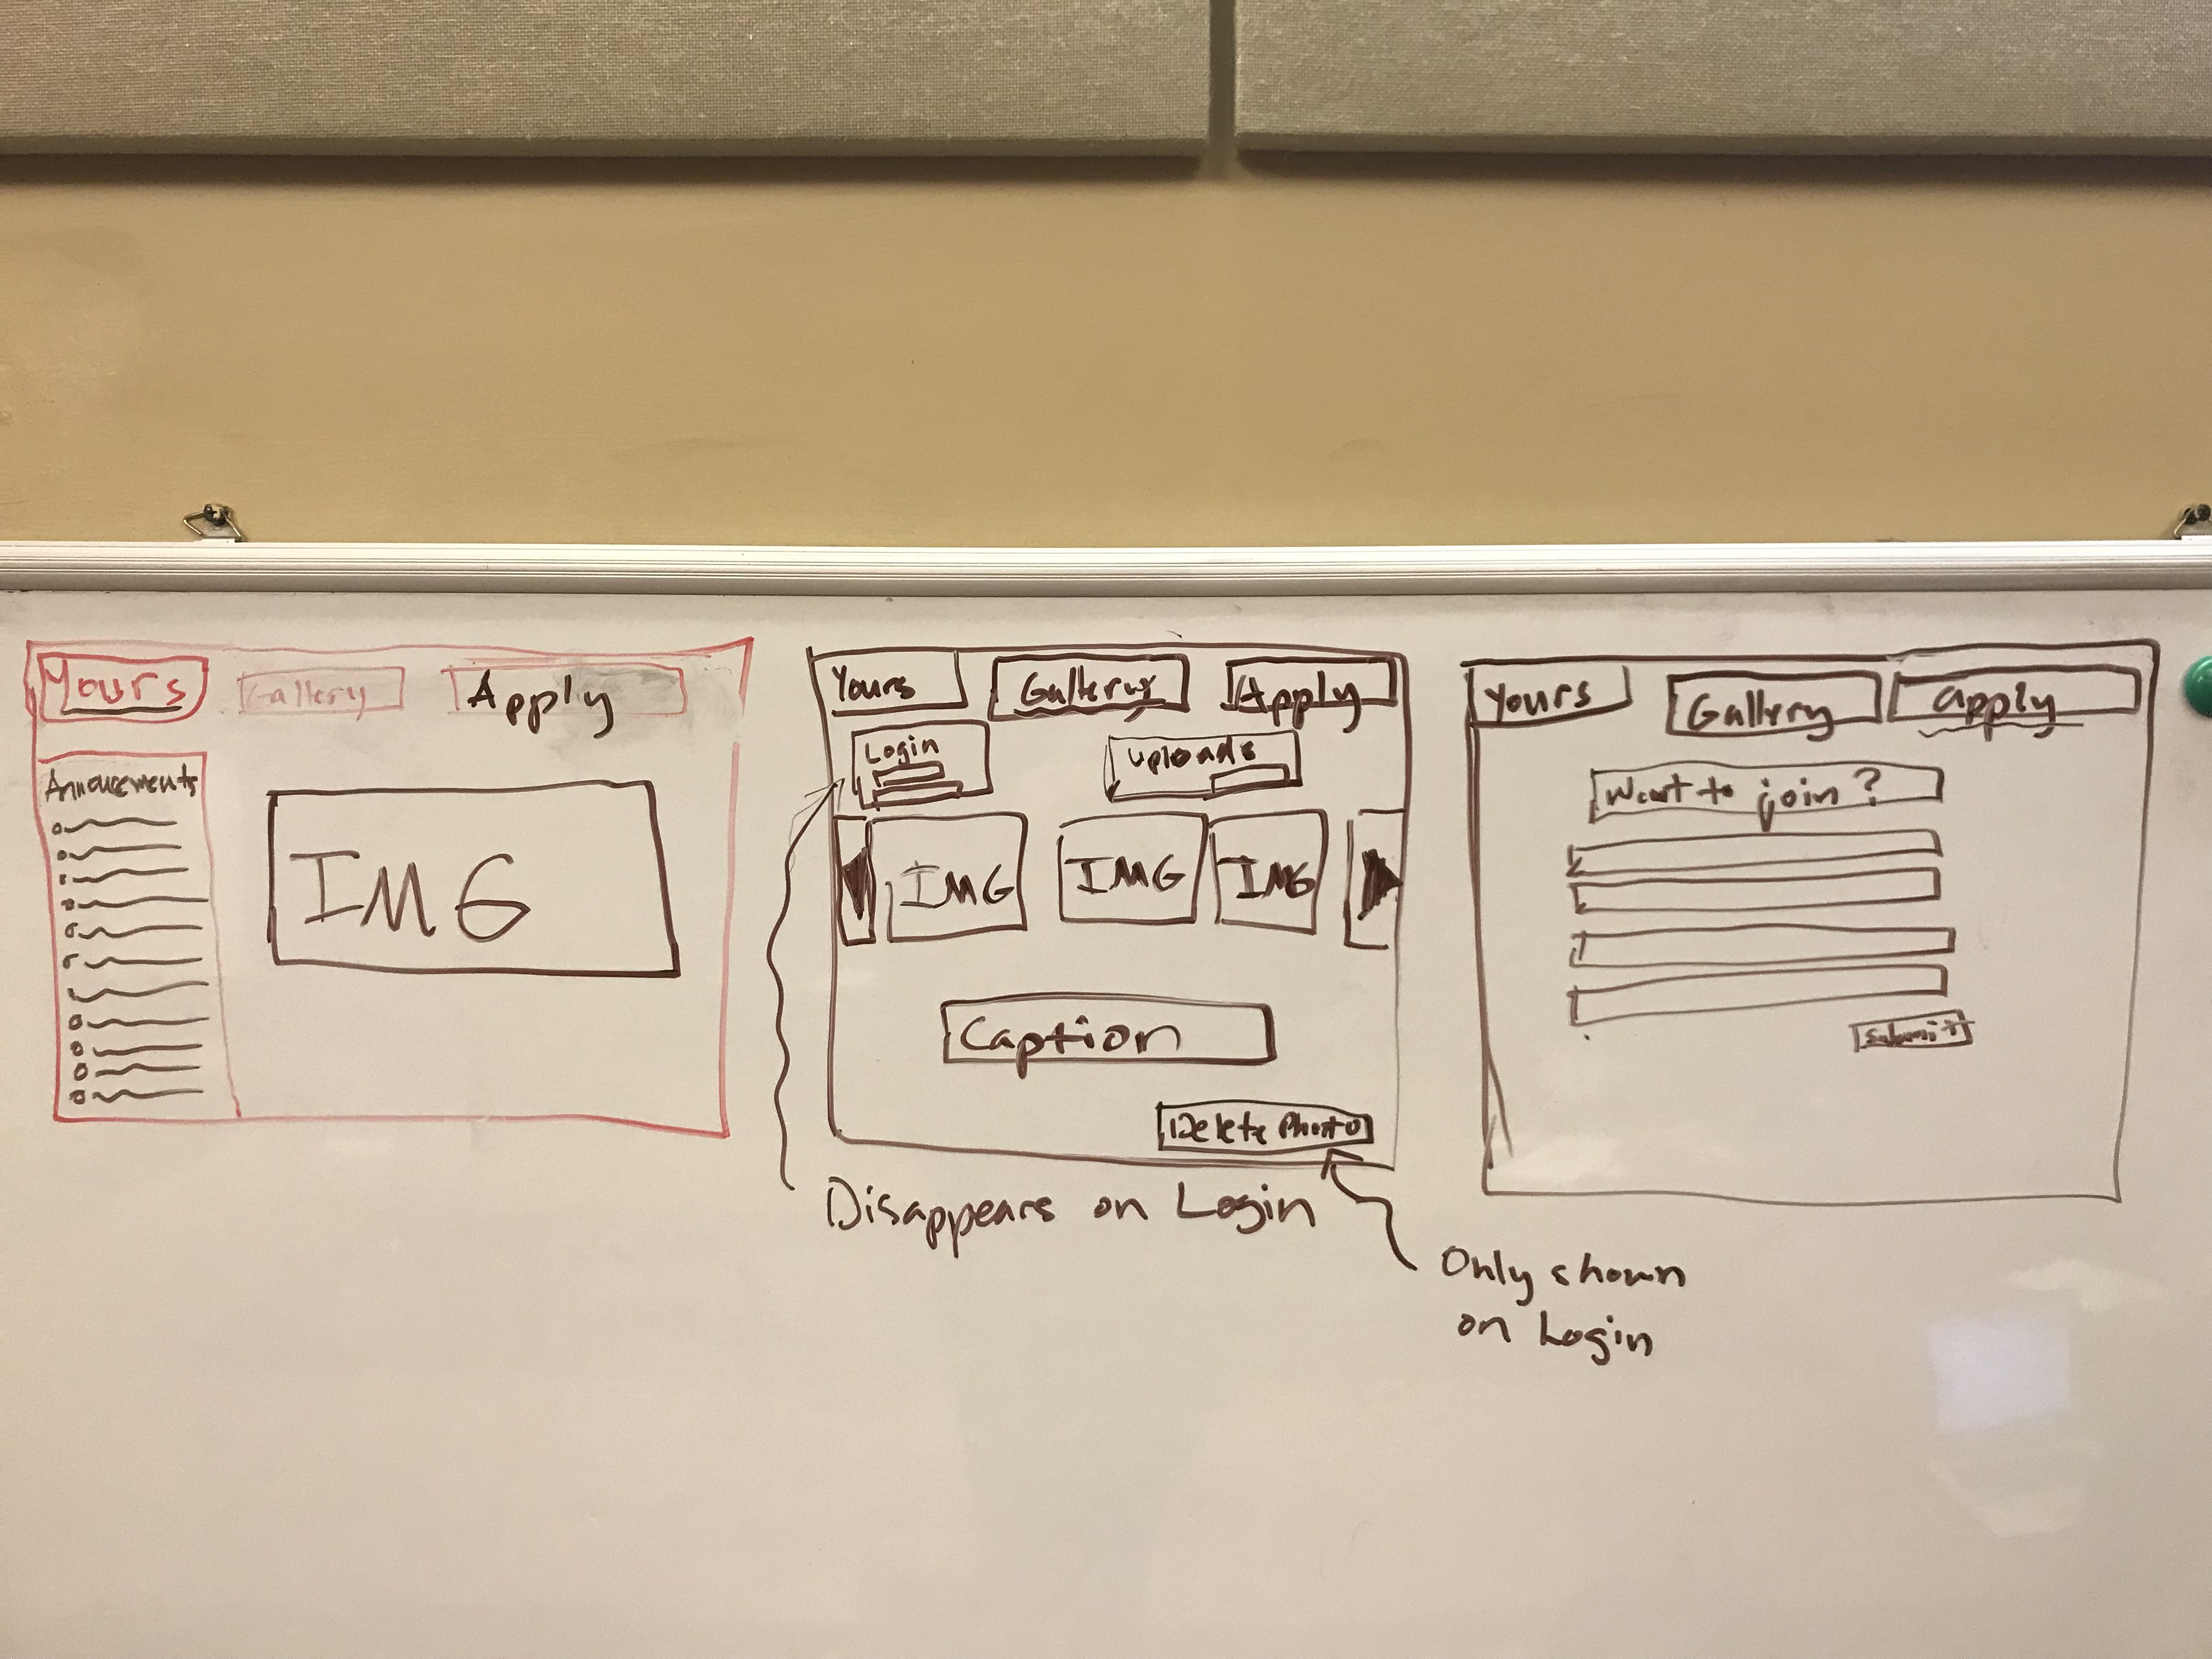 Yours Gallery Apply
Annoucements
IMG
Yours Gallery Apply
Login
uploads
IMG IMG IMG
Caption
Delete Photo
Disappears on Login
Only shown
on Login
Yours Gallery apply
Want to join?
Submit